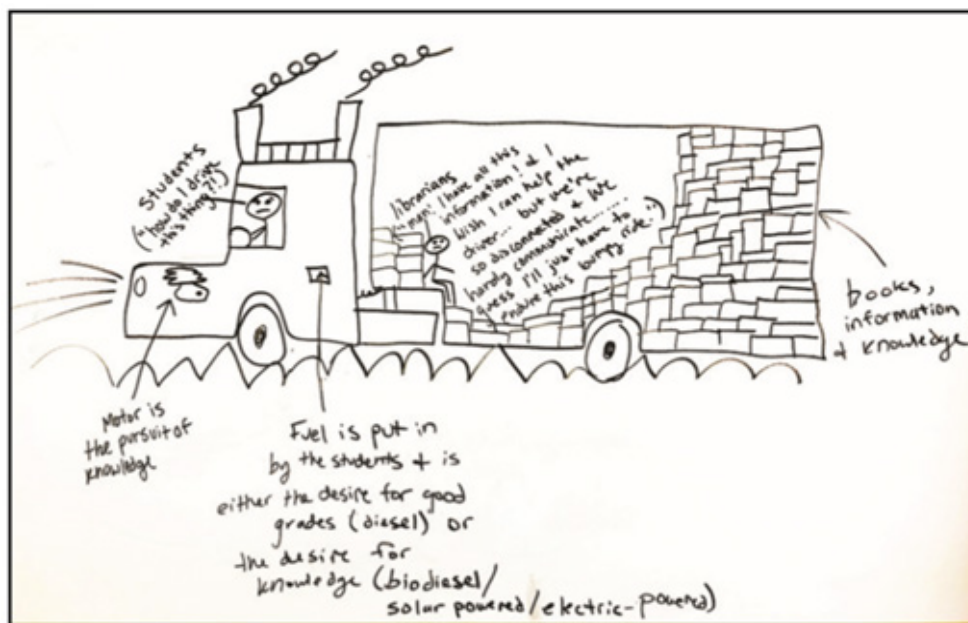 students
("how do I drive
this thing?!")
librarians
("man! I have all this
information! & I
wish I can help the
driver... but we're
so disconnected & we
hardy communicate......
guess I'll just have to
endure this bumpy ride.")
books,
information
& knowledge
Motor is
the pursuit of
knowledge
Fuel is put in
by the students + is
either the desire for good
grades (diesel) or
the desire for
knowledge (biodiesel/
solar powered/electric-powered)